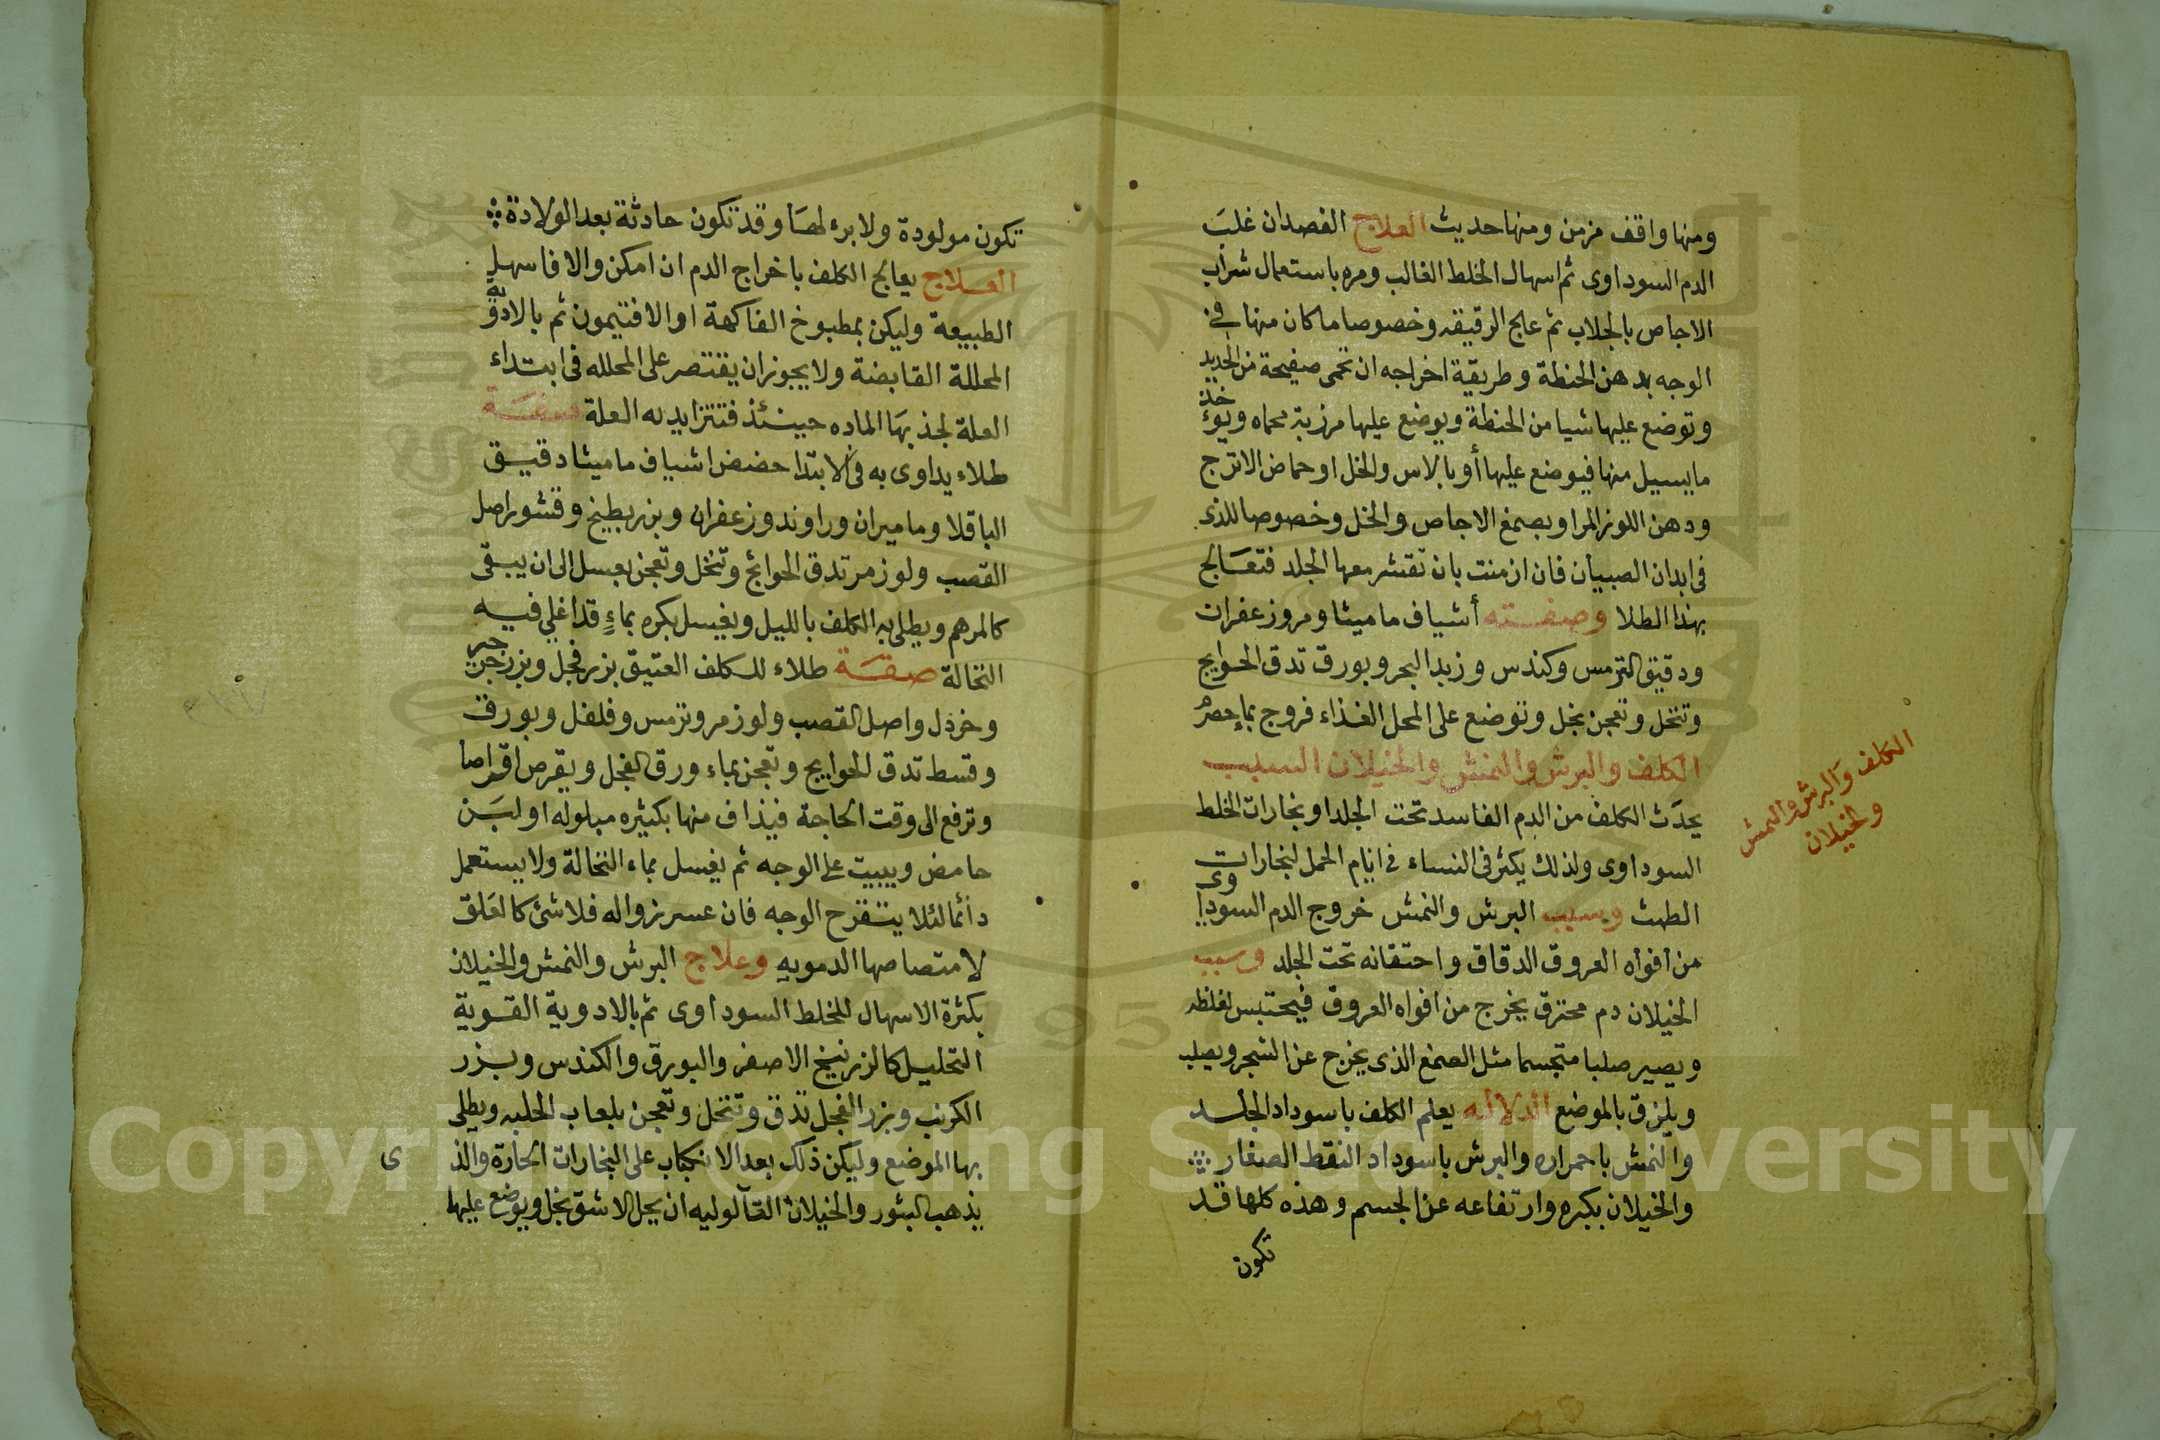 ومنها واقف مزمن ومنها حديث العلاج الفصد ان غلب
الدم السوداوى ثم اسهال الخلط الغالب ومره باستعمال شراب
الاجاص بالجلاب ثم عالج الرقيقه وخصوصا ما كان منها فى
الوجه بدهن الحنطة وطريقة اخراجه ان تحمى صفيحة من الحديد
وتوضع عليها شيا من الحنطة ويوضع عليها مرزبة محماه ويوءخذ
مايسيل منها فيوضع عليها أو بالاس والخل او حماض الاترج
ودهن اللوز المر او بصمغ الاجاص والخل وخصوصا للذى
فى ابدان الصبيان فان ازمنت بان تقشر معها الجلد فتعالج
بهذا الطلا وصفته أشياف ماميثا ومر وزعفران
ودقيق الترمس وكندس وزبد البحر وبورق تدق الحوايج
وتنخل وتعجن بخل وتوضع على المحل الغذاء فروج بماء حصرم
الكلف والبرش والنمش والخيلان السبب
يحدث الكلف من الدم الفاسد تحت الجلد او بخارات الخلط
السوداوى ولذلك يكثر فى النساء فى ايام الحمل لبخارات
الطمث وسبب البرش والنمش خروج الدم السوداوى
من أفواه العروق الدقاق واحتقانه تحت الجلد وسبب
الخيلان دم محترق يخرج من افواه العروق فيحتبس لغلظه
ويصير صلبا متجسما مثل الصمغ الذى يخرج عن الشجر ويصلب
ويلزق بالموضع الدلاله يعلم الكلف باسوداد الجلد
والنمش باحمراره والبرش باسوداد النقط الصغار
والخيلان بكبره وارتفاعه عن الجسم وهذه كلها قد
تكون
الكلف والبرش والنمش
والخيلان
تكون مولودة ولا برء لها وقد تكون حادثة بعد الولادة
العلاج يعالج الكلف باخراج الدم ان امكن والا فاسهل
الطبيعة وليكن بمطبوخ الفاكهة او الافتيمون ثم بالادوية
المحللة القابضة ولا يجوز ان يقتصر على المحلله فى ابتداء
العلة لجذبها الماده حينئذ فتتزايد به العلة صفة
طلاء يداوى به فى الابتدا حضض اشياف ماميثا دقيق
الباقلا وماميران وراوند وزعفران وبزر بطيخ وقشور اصل
القصب ولوز مر تدق الحوائج وتنخل وتعجن بعسل الى ان يبقى
كالمرهم ويطلى به الكلف بالليل ويغسل بكره بماء قد اغلى فيه
النخالة صفة طلاء للكلف العتيق بزر فجل وبزر جرجير
وخردل واصل القصب ولوز مر وترمس وفلفل وبورق
وقسط تدق الحوايج وتعجن بماء ورق الفجل ويقرص اقراصا
وترفع الى وقت الحاجة فيذاف منها بكثيره مبلوله او لبن
حامض ويبيت على الوجه ثم يغسل بماء النخالة ولا يستعمل
دائما لئلا يتقرح الوجه فان عسر زواله فلا شئ كالعلق
لامتصاصها الدمويه وعلاج البرش والنمش والخيلان
بكثرة الاسهال للخلط السوداوى ثم بالادوية القوية
التحليل كالزرنيخ الاصفر والبورق والكندس وبزر
الكرنب وبزر الفجل تدق وتنخل وتعجن بلعاب الحلبه ويطلى
بها الموضع وليكن ذلك بعد الانكباب على البخارات الحارة والذى
يذهب البثور والخيلان الثآلوليه ان يحل الاشق بخل ويوضع عليها
Copyright © King Saud University
1957